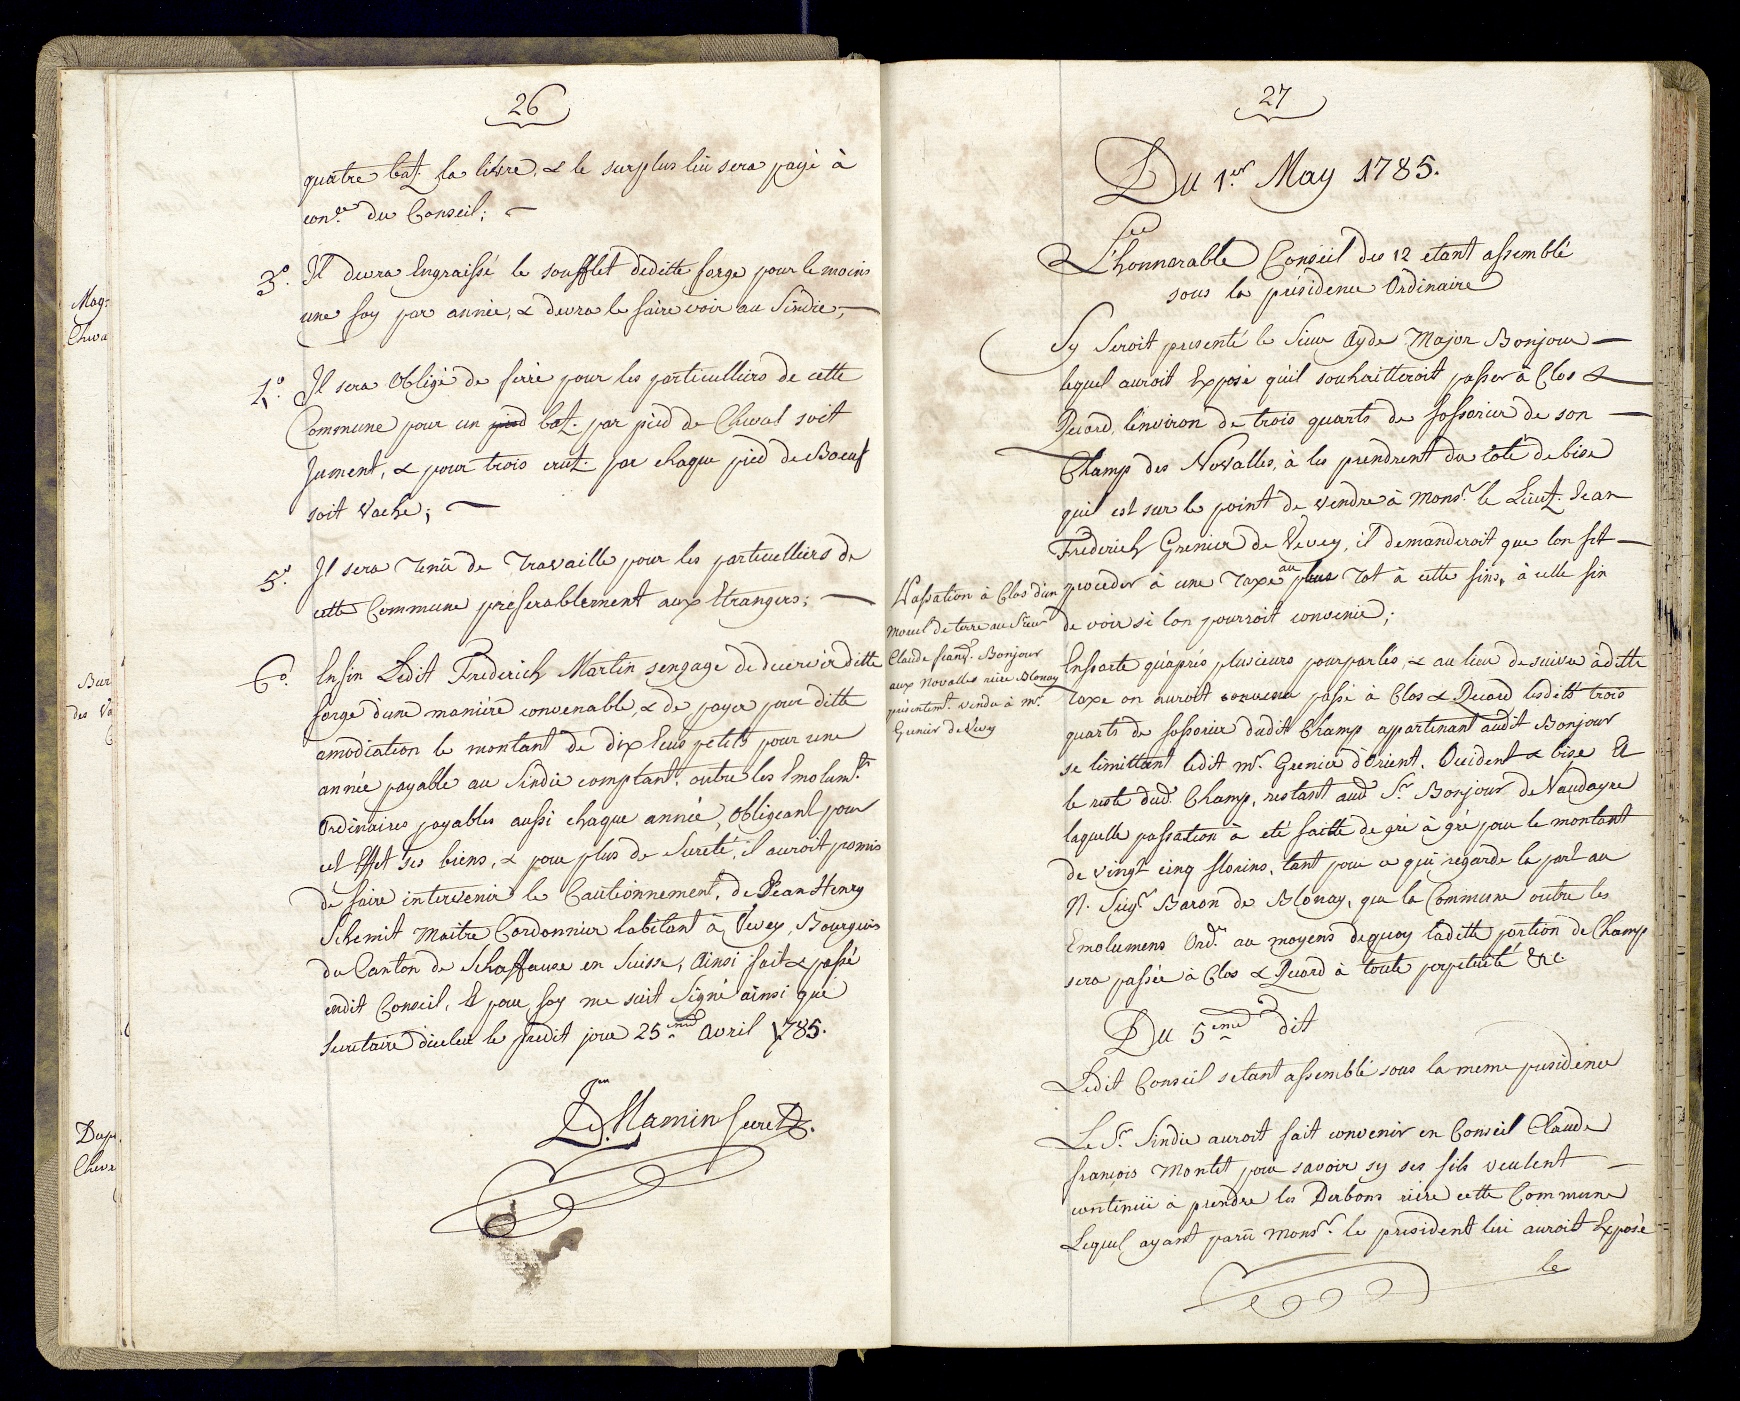 26
quatre batz. la livre, & le surplus lui sera payé à
con.te du Conseil;
3.° Il devra Engraissé le soufflet de ditte forge pour le moins
une foy par année, & devra le faire voir au Sindic,
4.° Il sera Obligé de ferré pour les particulliers de cette
Commune pour un pied batz. par pied de Cheval soit
Jument, & pour trois crutz. par chaque pied de Boeuf
soit Vache;
5.° Il sera Tenu de Travaillé pour les particulliers de
cette Commune preferablement aux Etrangers;
6.° Enfin Ledit Frederich Martin sengage de deservir ditte
forge d'une maniére convenable, & de payer pour ditte
amodiation le montant de dix Ecus petits pour une
année payable au Sindic comptant, outre les Emolum.ts
Ordinaires payables aussi chaque année, Obligeant pour
cet Effet ses biens, & pour plus de Sureté, il auroit promis
de faire intervenir le Cautionnement, de Jean Henry
Schemit Maitre Cordonnier habitant à Vevey, Bourgeois
du Canton de Schaffause en Suisse, Ainsi fait & passé
endit Conseil, Et pour foy me suit Signé ainsi que
Secretaire d'icelui le susdit jour 25.eme Avril 1785.
D. Mamin Secret.
Mag:
Cheva
Bar
des Va
Dup
Cheva
27
Du 1.er May 1785.
L'honnorable Conseil des 12 etant assemblé
sous la présidence Ordinaire
Sy Seroit presenté le Sieur Ayde Major Bonjour
lequel auroit Exposé qu'il souhaitteroit passer à Clos &
Record, l'environ de trois quarts de fossorier de son
Champ des Novalles, à les prendrent du coté de bise
qu'il est sur le point de vendre à Mons.r le Lieut. Jean
Frederich Grenier de Vevey, il demanderoit que lon fit
proceder à une Taxe au plus Tot à cette fins, à celle fin
de voir si lon pourroit convenir;
Passation à Clos d'un
morcel de terre au Sieur
Claude franç.s Bonjour
aux Novalles rière Blonay
présentem.t vendu à M.r
Grenier de Vevey
Ensorte qu'après plusieurs pourparlés, & au lieu de suivre à ditte
Taxe on auroit convenu passé à Clos & Record lesdits trois
quarts de fossorier dudit Champ appartenant audit Bonjour
se limittant ledit M.r Grenier d'Orient, Occident & bise Et
le reste dud. Champ, restant aud. S.r Bonjour de Vaudayre
laquelle passation à eté faitte de gré à gré pour le montant
de vingt cinq florins, tant pour ce qui regarde la part au
N. Seig.r Baron de Blonay, que la Commune outre les
Emolumens Ord.s au moyens dequoy ladette portion de Champ
sera passée à Clos & Record à toute perpetuité &c.
Du 5.eme dit
Ledit Conseil setant assemblé sous la meme presidence
Le S.r Sindic auroit fait convenir en Conseil Claude
françois Montet pour savoir sy ses fils veulent
continué à prendre les Derbons rière cette Commune
Lequel ayant paru Mons.r le président lui auroit Exposé
le